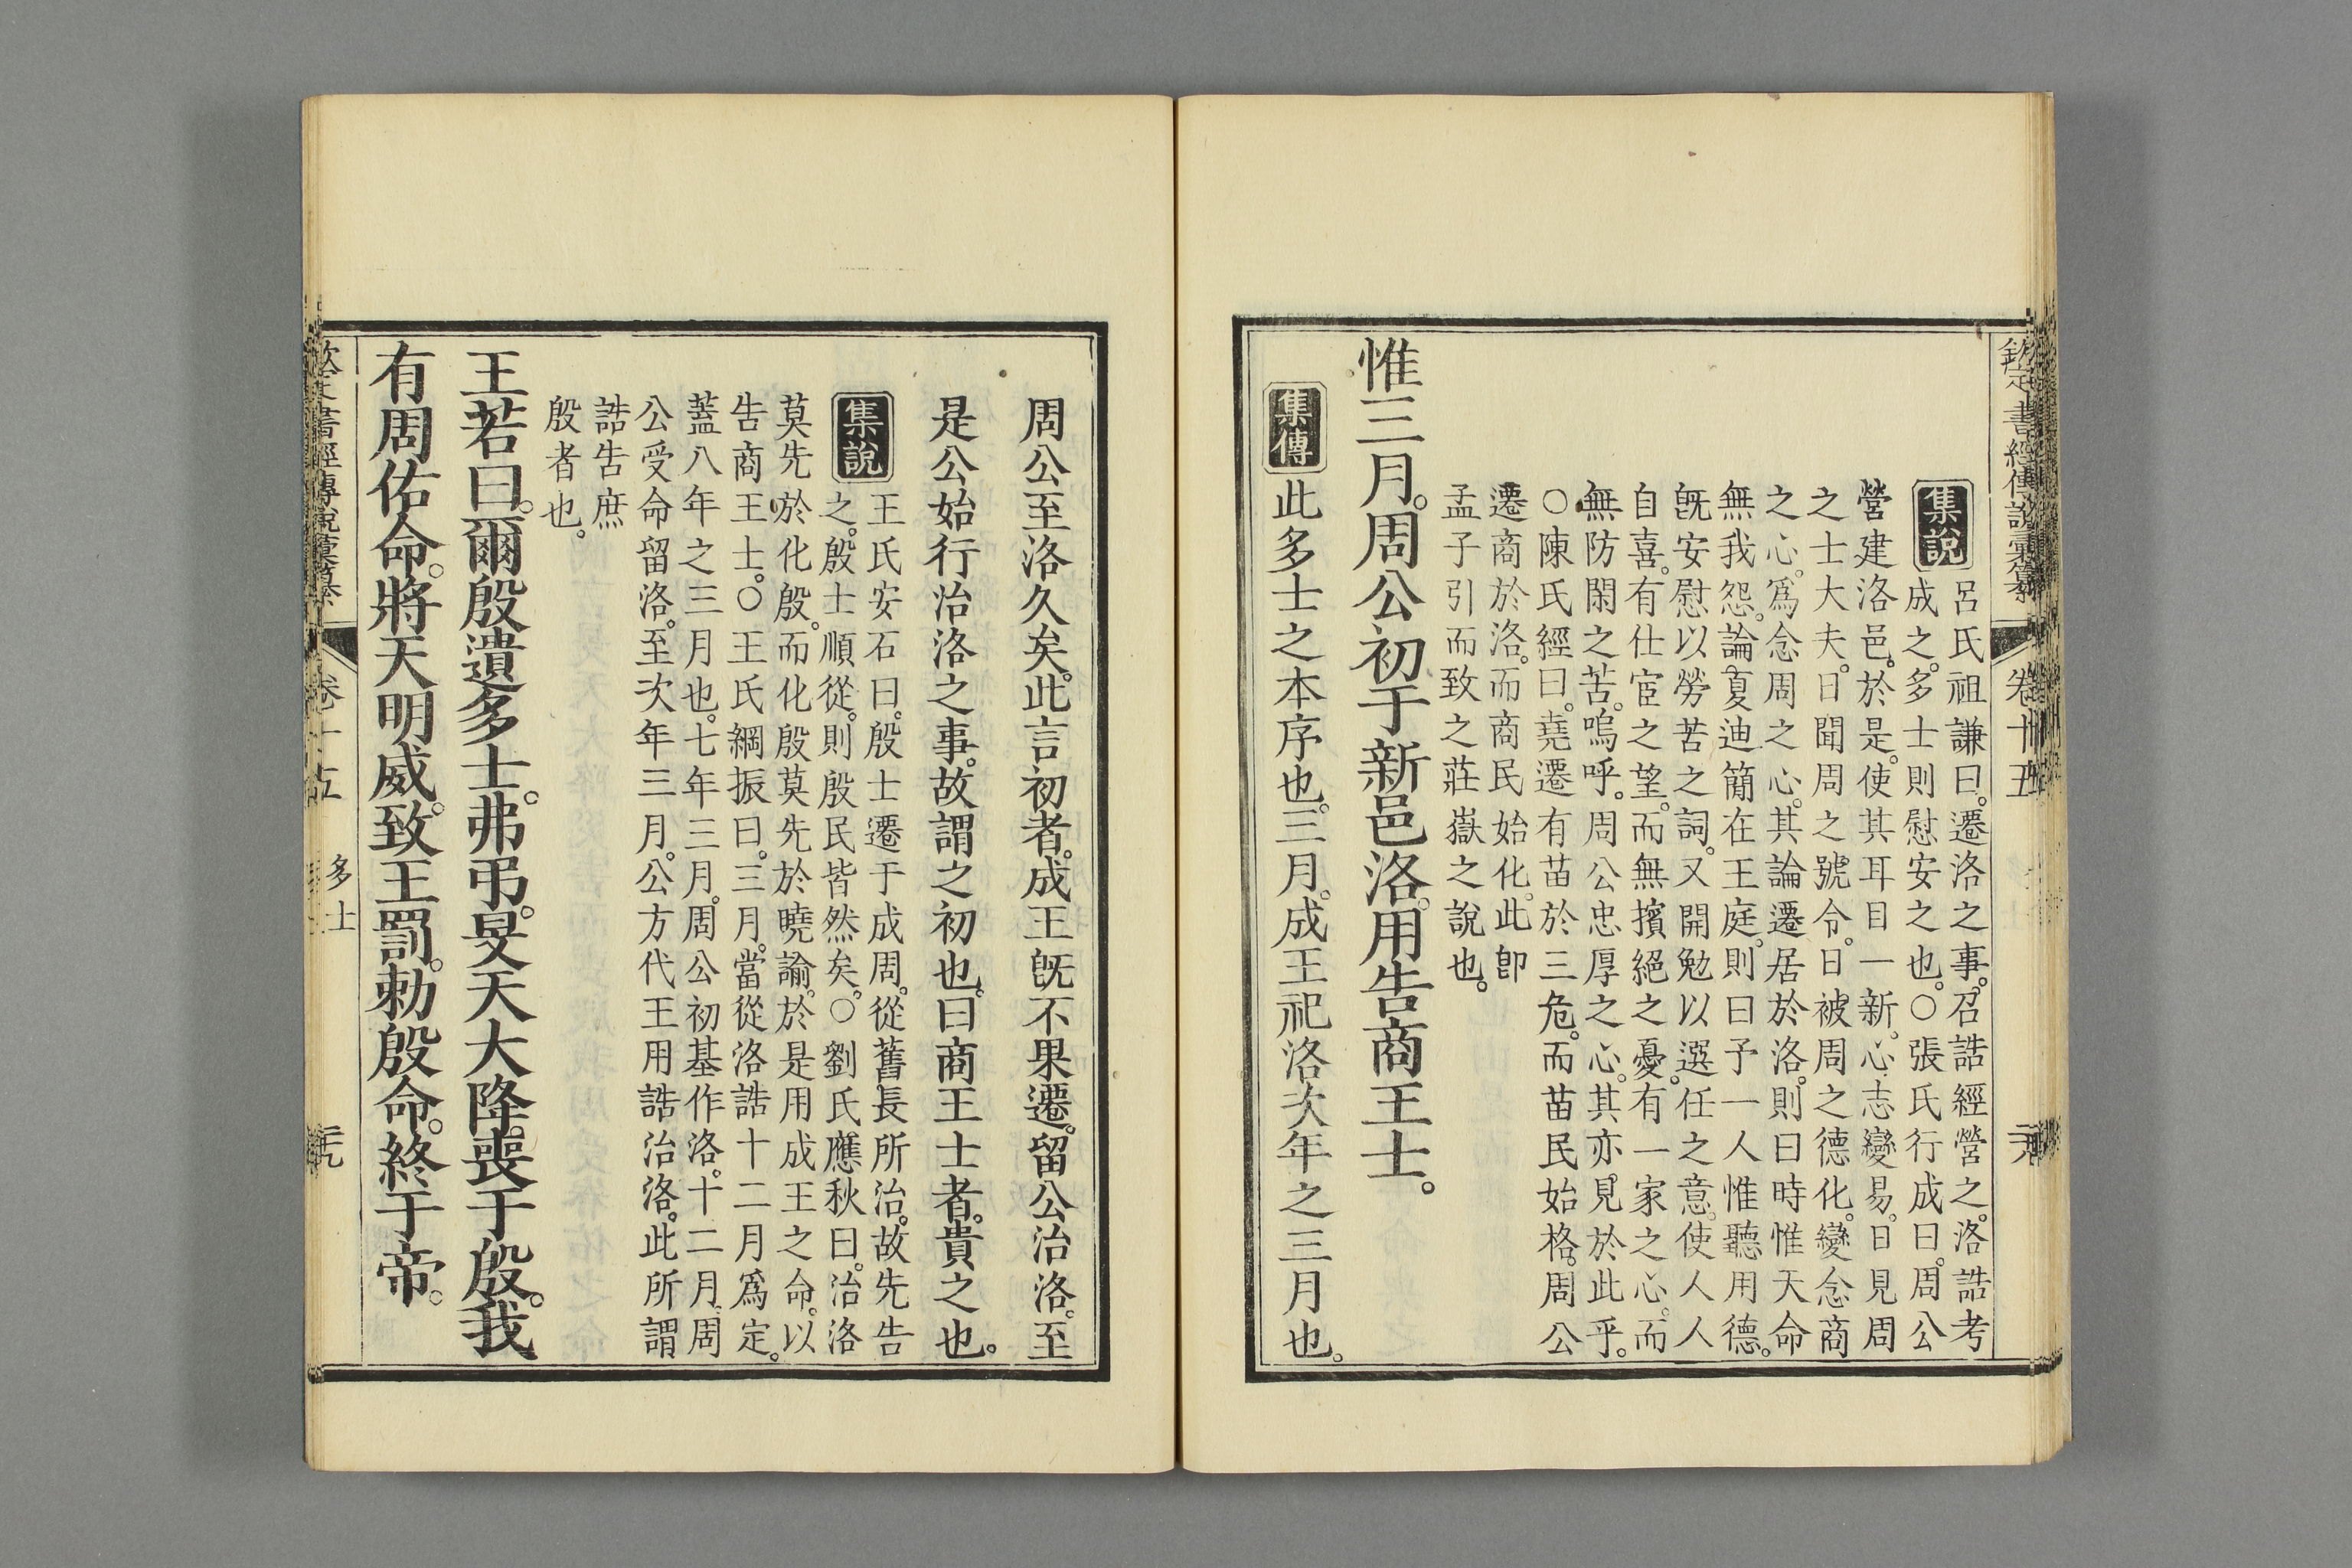 欽定書經傳說彙纂 卷十五
集說 呂氏祖謙曰。遷洛之事。召誥經營之。洛誥考
成之。多士則慰安之也。○張氏行成曰。周公
營建洛邑。於是。使其耳目一新。心志變易。日見周
之士大夫。日聞周之號令。日被周之德化。變念商
之心。爲念周之心。其論遷居於洛。則曰時惟天命
無我怨。論夏迪簡在王庭。則曰予一人惟聽用德。
旣安慰以勞苦之詞。又開勉以選任之意。使人人
自喜。有仕宦之望。而無擯絕之憂。有一家之心。而
無防閑之苦。嗚呼。周公忠厚之心。其亦見於此乎。
○陳氏經曰。堯遷有苗於三危。而苗民始格。周公
遷商於洛。而商民始化。此卽
孟子引而致之莊嶽之說也。
惟三月。周公初于新邑洛。用告商王士。
集傳 此多士之本序也。三月。成王祀洛次年之三月也。
周公至洛久矣。此言初者。成王旣不果遷。留公治洛。至
是公始行治洛之事。故謂之初也。曰商王士者。貴之也。
集說 王氏安石曰。殷士遷于成周。從舊長所治。故先告
之。殷士順從。則殷民皆然矣。○劉氏應秋曰。治洛
莫先於化殷。而化殷莫先於曉諭。於是用成王之命。以
告商王士。○王氏綱振曰。三月。當從洛誥十二月爲定。
蓋八年之三月也。七年三月。周公初基作洛。十二月。周
公受命留洛。至次年三月。公方代王用誥治洛。此所謂
誥告庶
殷者也。
王若曰。爾殷遺多士。弗弔。旻天大降喪于殷。我
有周佑命。將天明威。致王罰。勅殷命。終于帝。
多士